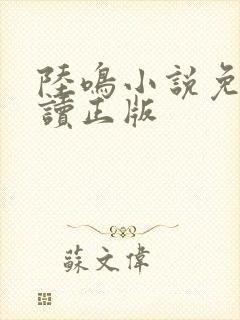 陸鳴小說免
讀正版
蘇文偉